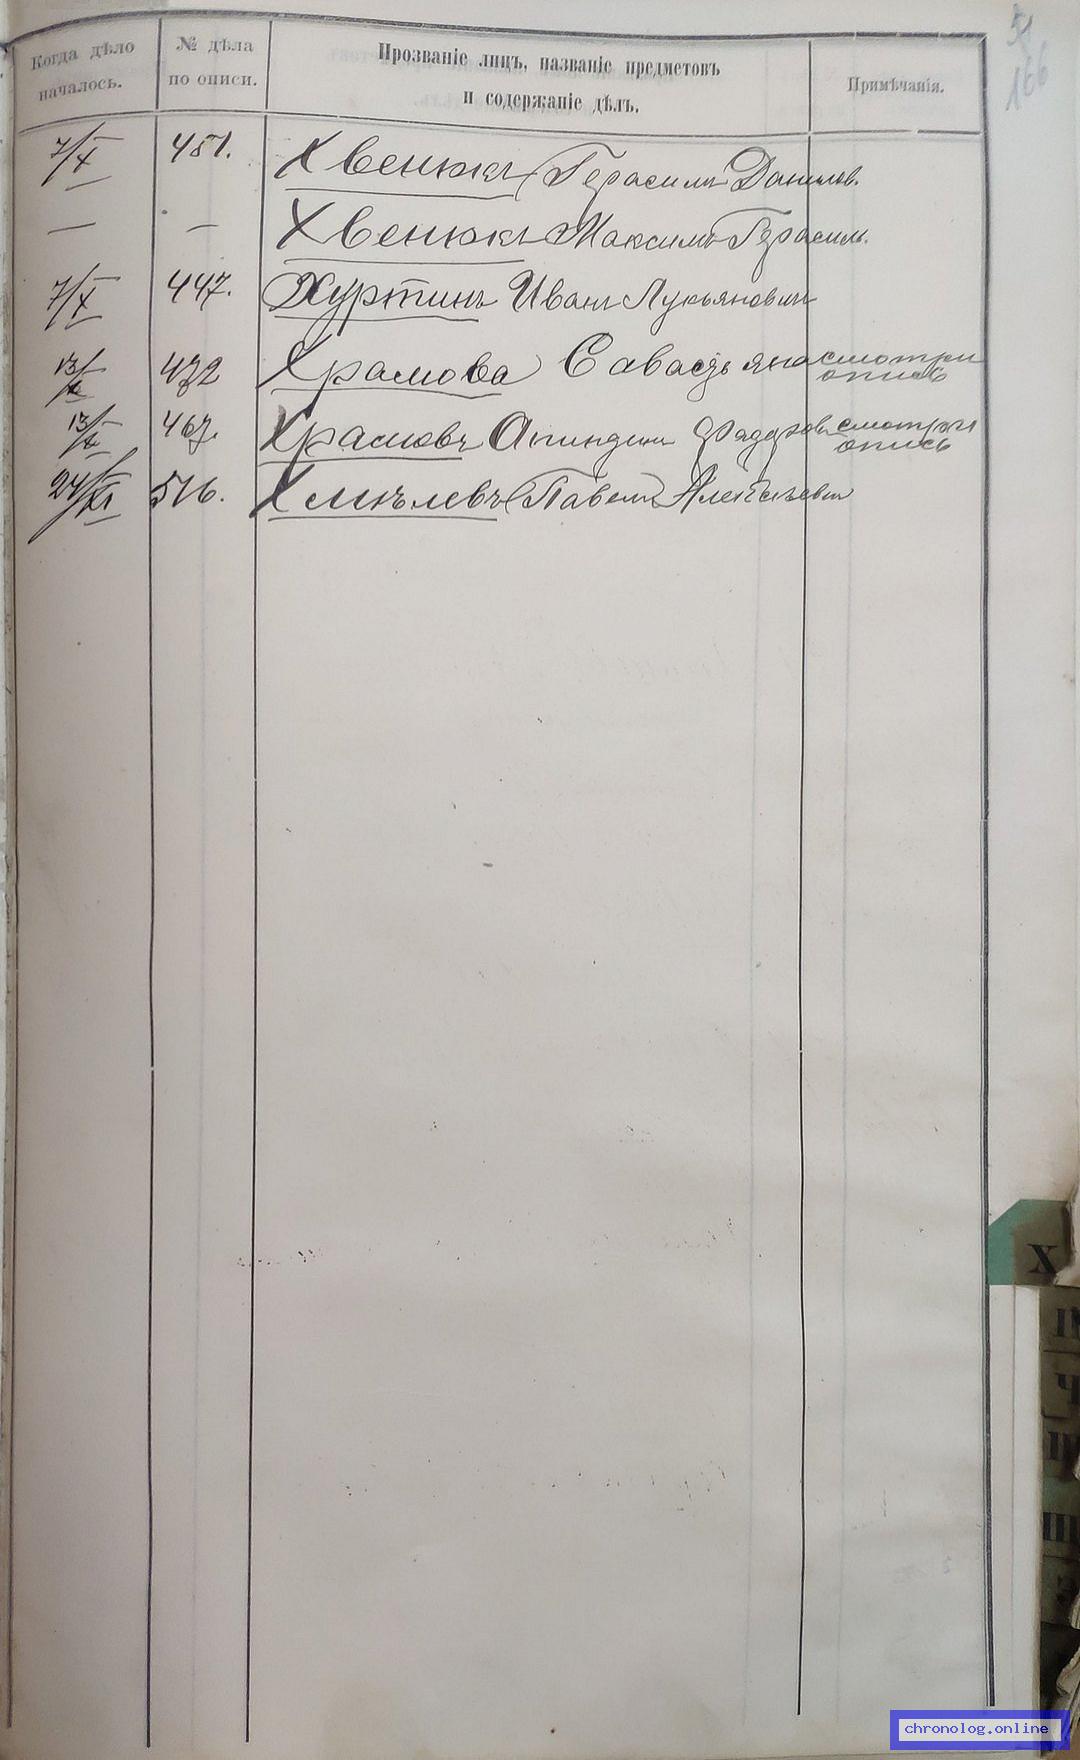 51
166
Когда дѣло началось.
№ дѣла по описи.
Прозваніе лицъ, названіе предметовъ
и содержаніе дѣлъ.
Примѣчанія.
7/X 451. Хвенюкъ Герасимъ Данилов.
— — Хвенюкъ Максимъ Герасим.
7/X 447. Хуртинъ Иванъ Лукьяновичъ
13/X 472 Храмова смотри
опись
13/X 467. Храмовъ смотри
опись
24/XI 516. Хмѣлевъ Павелъ Алексѣевич
Х
Ч
chronolog.online